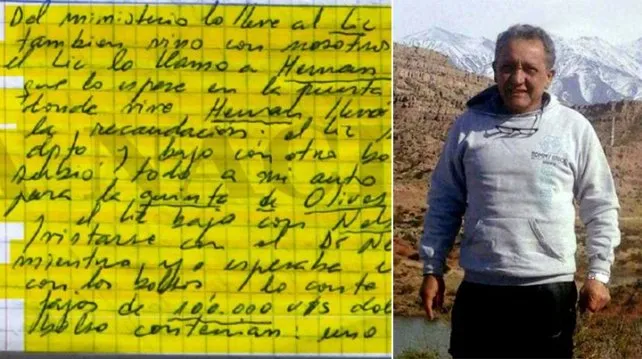 Del ministerio lo lleve al Lic
tambien vino con nosotros
el Lic lo llamo a Hernan
que lo espere en la puerta
donde vino Hernan llevó
la recaudacion. el Lic
dpto y bajo con otro bo
subio todo a mi auto
para la quinta de Olivos
y el Lic bajo con Nel
con el Dr Ne
mientras yo esperaba
con los bolsos / lo conta
fajos de 100.000 dol
bolso contenian: uno